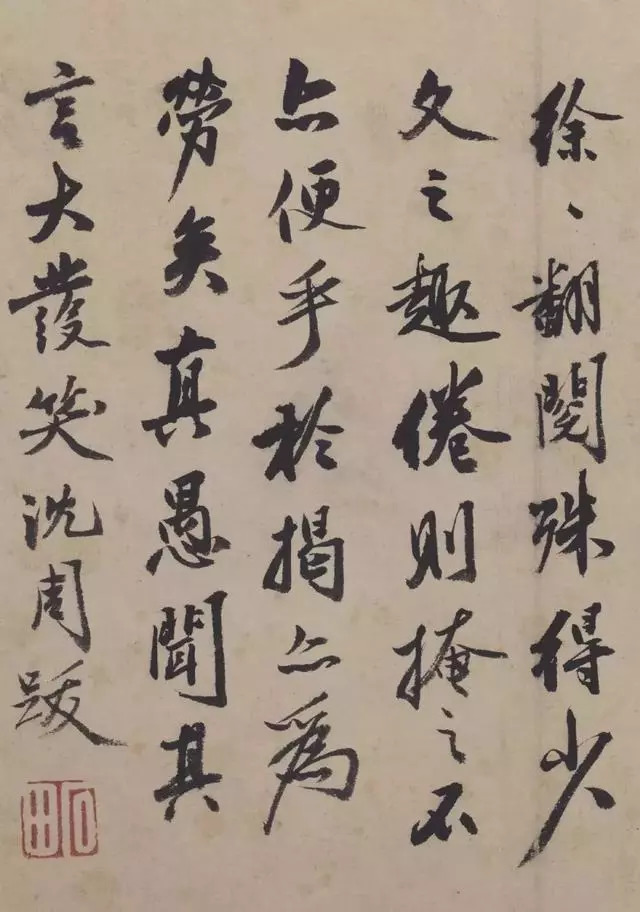 徐〻翻閱殊得少
文之趣倦則掩之不
亦便乎於揭亦爲
勞矣真愚聞其
言大發笑沈周跋
石田